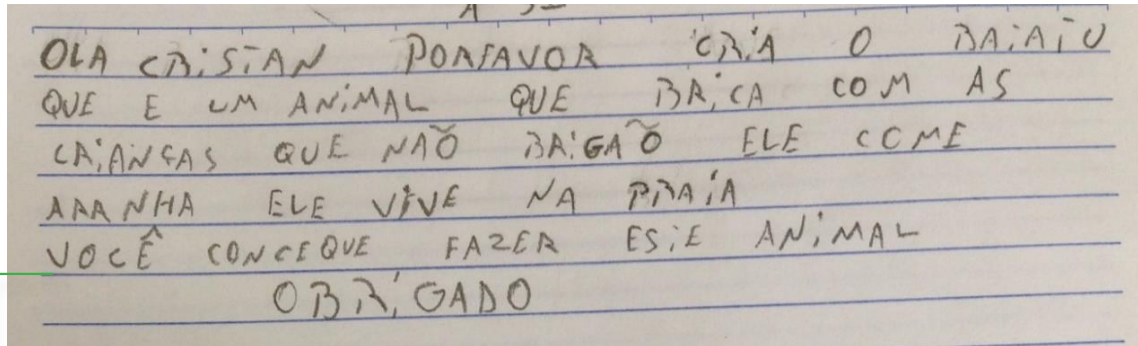 OLA CRISTAN PORFAVOR CRIA O BAIAIU
QUE E UM ANIMAL QUE BRICA COM AS
CRIANÇAS QUE NÃO BRIGAÕ ELE COME
ARANHA ELE VIVE NA PRAIA
VOCÊ CONCEQUE FAZER ESTE ANIMAL
OBRIGADO